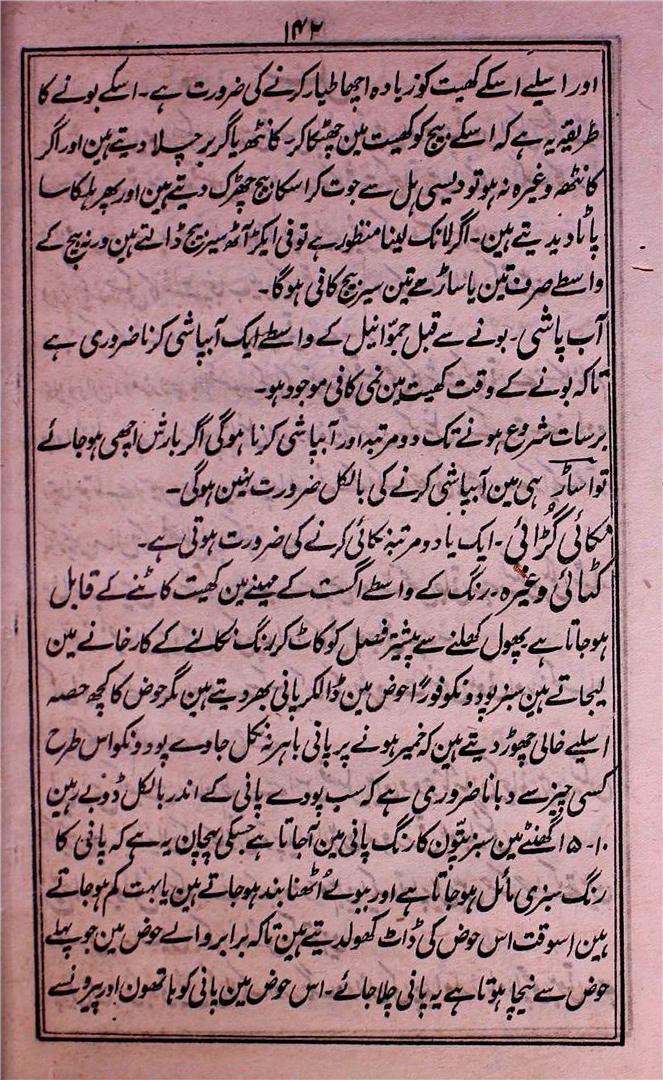 ۱۴۲
اور اسلیے اسکے کھیت کو زیادہ اچھا طیار کرنے کی ضرورت ہے۔ اسکے بونے کا
طریقہ یہ ہے کہ اسکے بیج کو کھیت مین چھٹکا کر۔ کانٹھہ یا گربر چلا دیتے ہین اور اگر
کانٹھہ وغیرہ نہ ہو تو دیسی ہل سے جوت کر اسکا بیج چھڑک دیتے ہین اور پھر ہلکا سا
پاٹا دیدیتے ہین۔ اگر لانک لینا منظور ہے تو فی ایکڑ آٹھ سیر بیج ڈالتے ہین ورنہ بیج کے
واسطے صرف تین یا ساڑھے تین سیر بیج کافی ہوگا۔
آب پاشی۔ بونے سے قبل جموّا نیل کے واسطے ایک آبپاشی کرنا ضروری ہے
تاکہ بونے کے وقت کھیت مین نمی کافی موجود ہو۔
برسات شروع ہونے تک دو مرتبہ اور آبپاشی کرنا ہوگی اگر بارش اچھی ہو جائے
تو اساڑ ہی مین آبپاشی کرنے کی بالکل ضرورت نہین ہوگی۔
نکائی گُڑائی۔ ایک یا دو مرتبہ نکائی کرنے کی ضرورت ہوتی ہے۔
کٹائی وغیرہ۔ رنگ کے واسطے اگست کے مہینے مین کھیت کاٹنے کے قابل
ہو جاتا ہے پھول کھلنے سے پیشتر فصل کو کاٹ کر رنگ نکالنے کے کارخانے مین
لیجاتے ہین سبز پودونکو فورًا حوض مین ڈالکر پانی بھر دیتے ہین مگر حوض کا کچھ حصہ
اسلیے خالی چھوڑ دیتے ہین کہ خمیر ہونے پر پانی باہر نہ نکل جاوے پودونکو اس طرح
کسی چیز سے دبانا ضروری ہے کہ سب پودے پانی کے اندر بالکل ڈوبے رہین
۱۰۔۱۵ گھنٹے مین سبز پتّون کا رنگ پانی مین آجاتا ہے جسکی پہچان یہ ہے کہ پانی کا
رنگ سبزی مائل ہو جاتا ہے اور ببولے اُٹھنا بند ہو جاتے ہین یا بہت کم ہو جاتے
ہین اسوقت اس حوض کی ڈاٹ کھولدیتے ہین تاکہ برابر والے حوض مین جو پہلے
حوض سے نیچا ہوتا ہے یہ پانی چلا جائے۔ اس حوض مین پانی کو ہاتھون اور پیرونسے